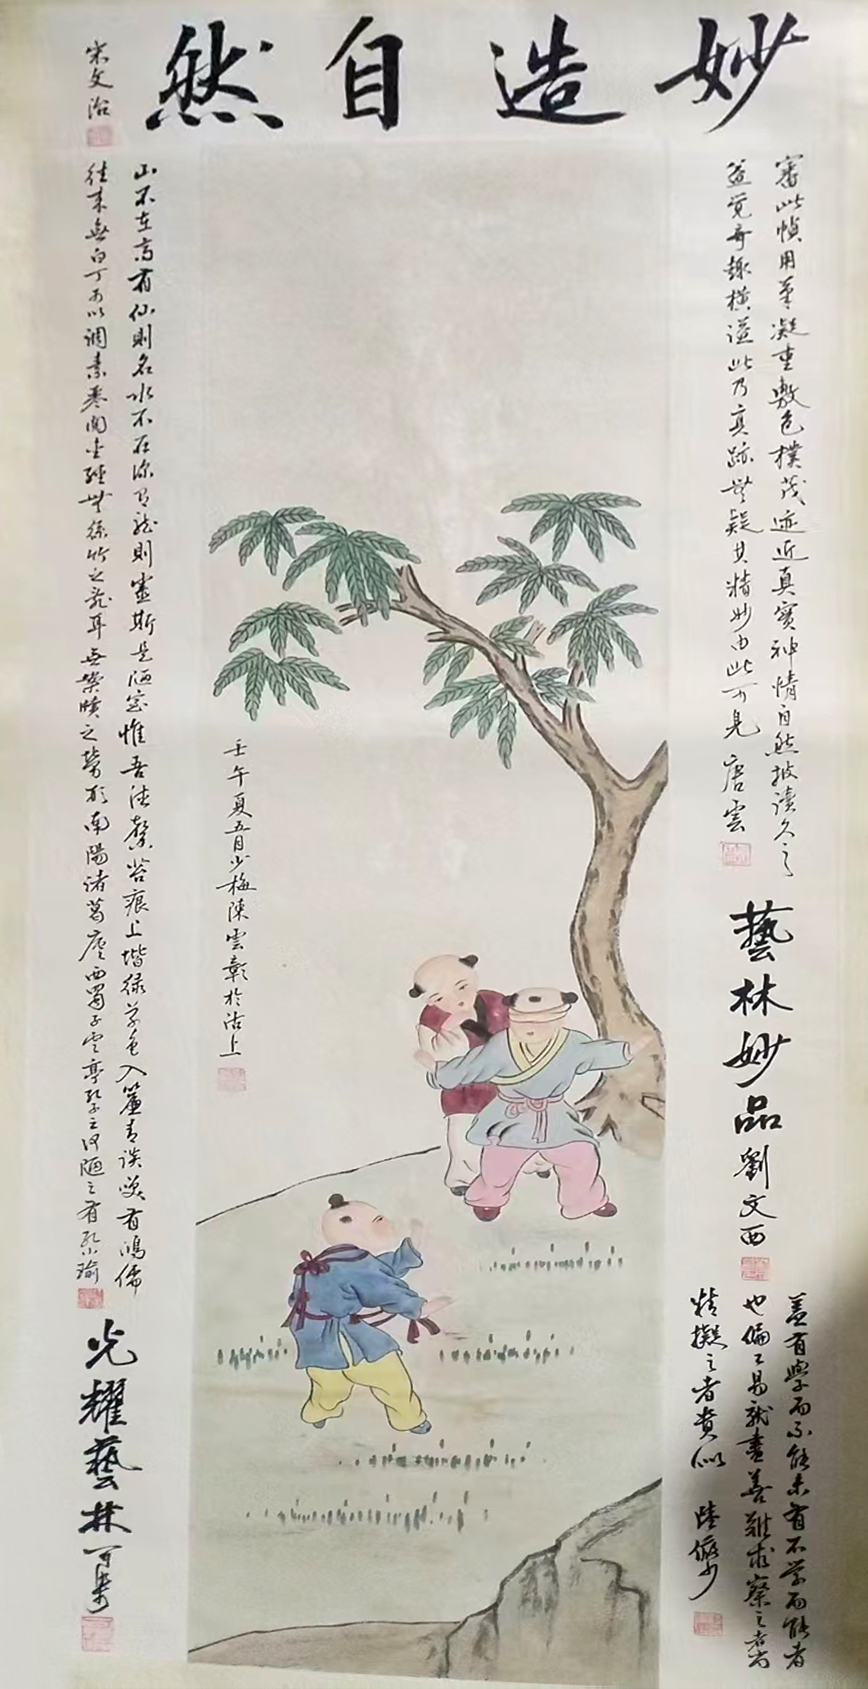 妙造自然
宋文治
審此幀用筆凝重敷色樸茂迹近真實神情自然披讀久之
益覺奇趣橫溢此乃真跡無疑其精妙由此可見 唐雲
藝林妙品 劉文西
蓋有學而不能未有不學而能者
也偏工易就盡善難求察之者尚
精擬之者貴似 陸儼少
壬午夏五月少梅陳雲彰於沽上
山不在高有仙則名水不在深有龍則靈斯是陋室惟吾德馨苔痕上堦綠草色入簾青談笑有鴻儒
往來無白丁可以調素琴閱金經無絲竹之亂耳無案牘之勞形南陽諸葛廬西蜀子雲亭孔子云何陋之有 孔小瑜
光耀藝林 可染